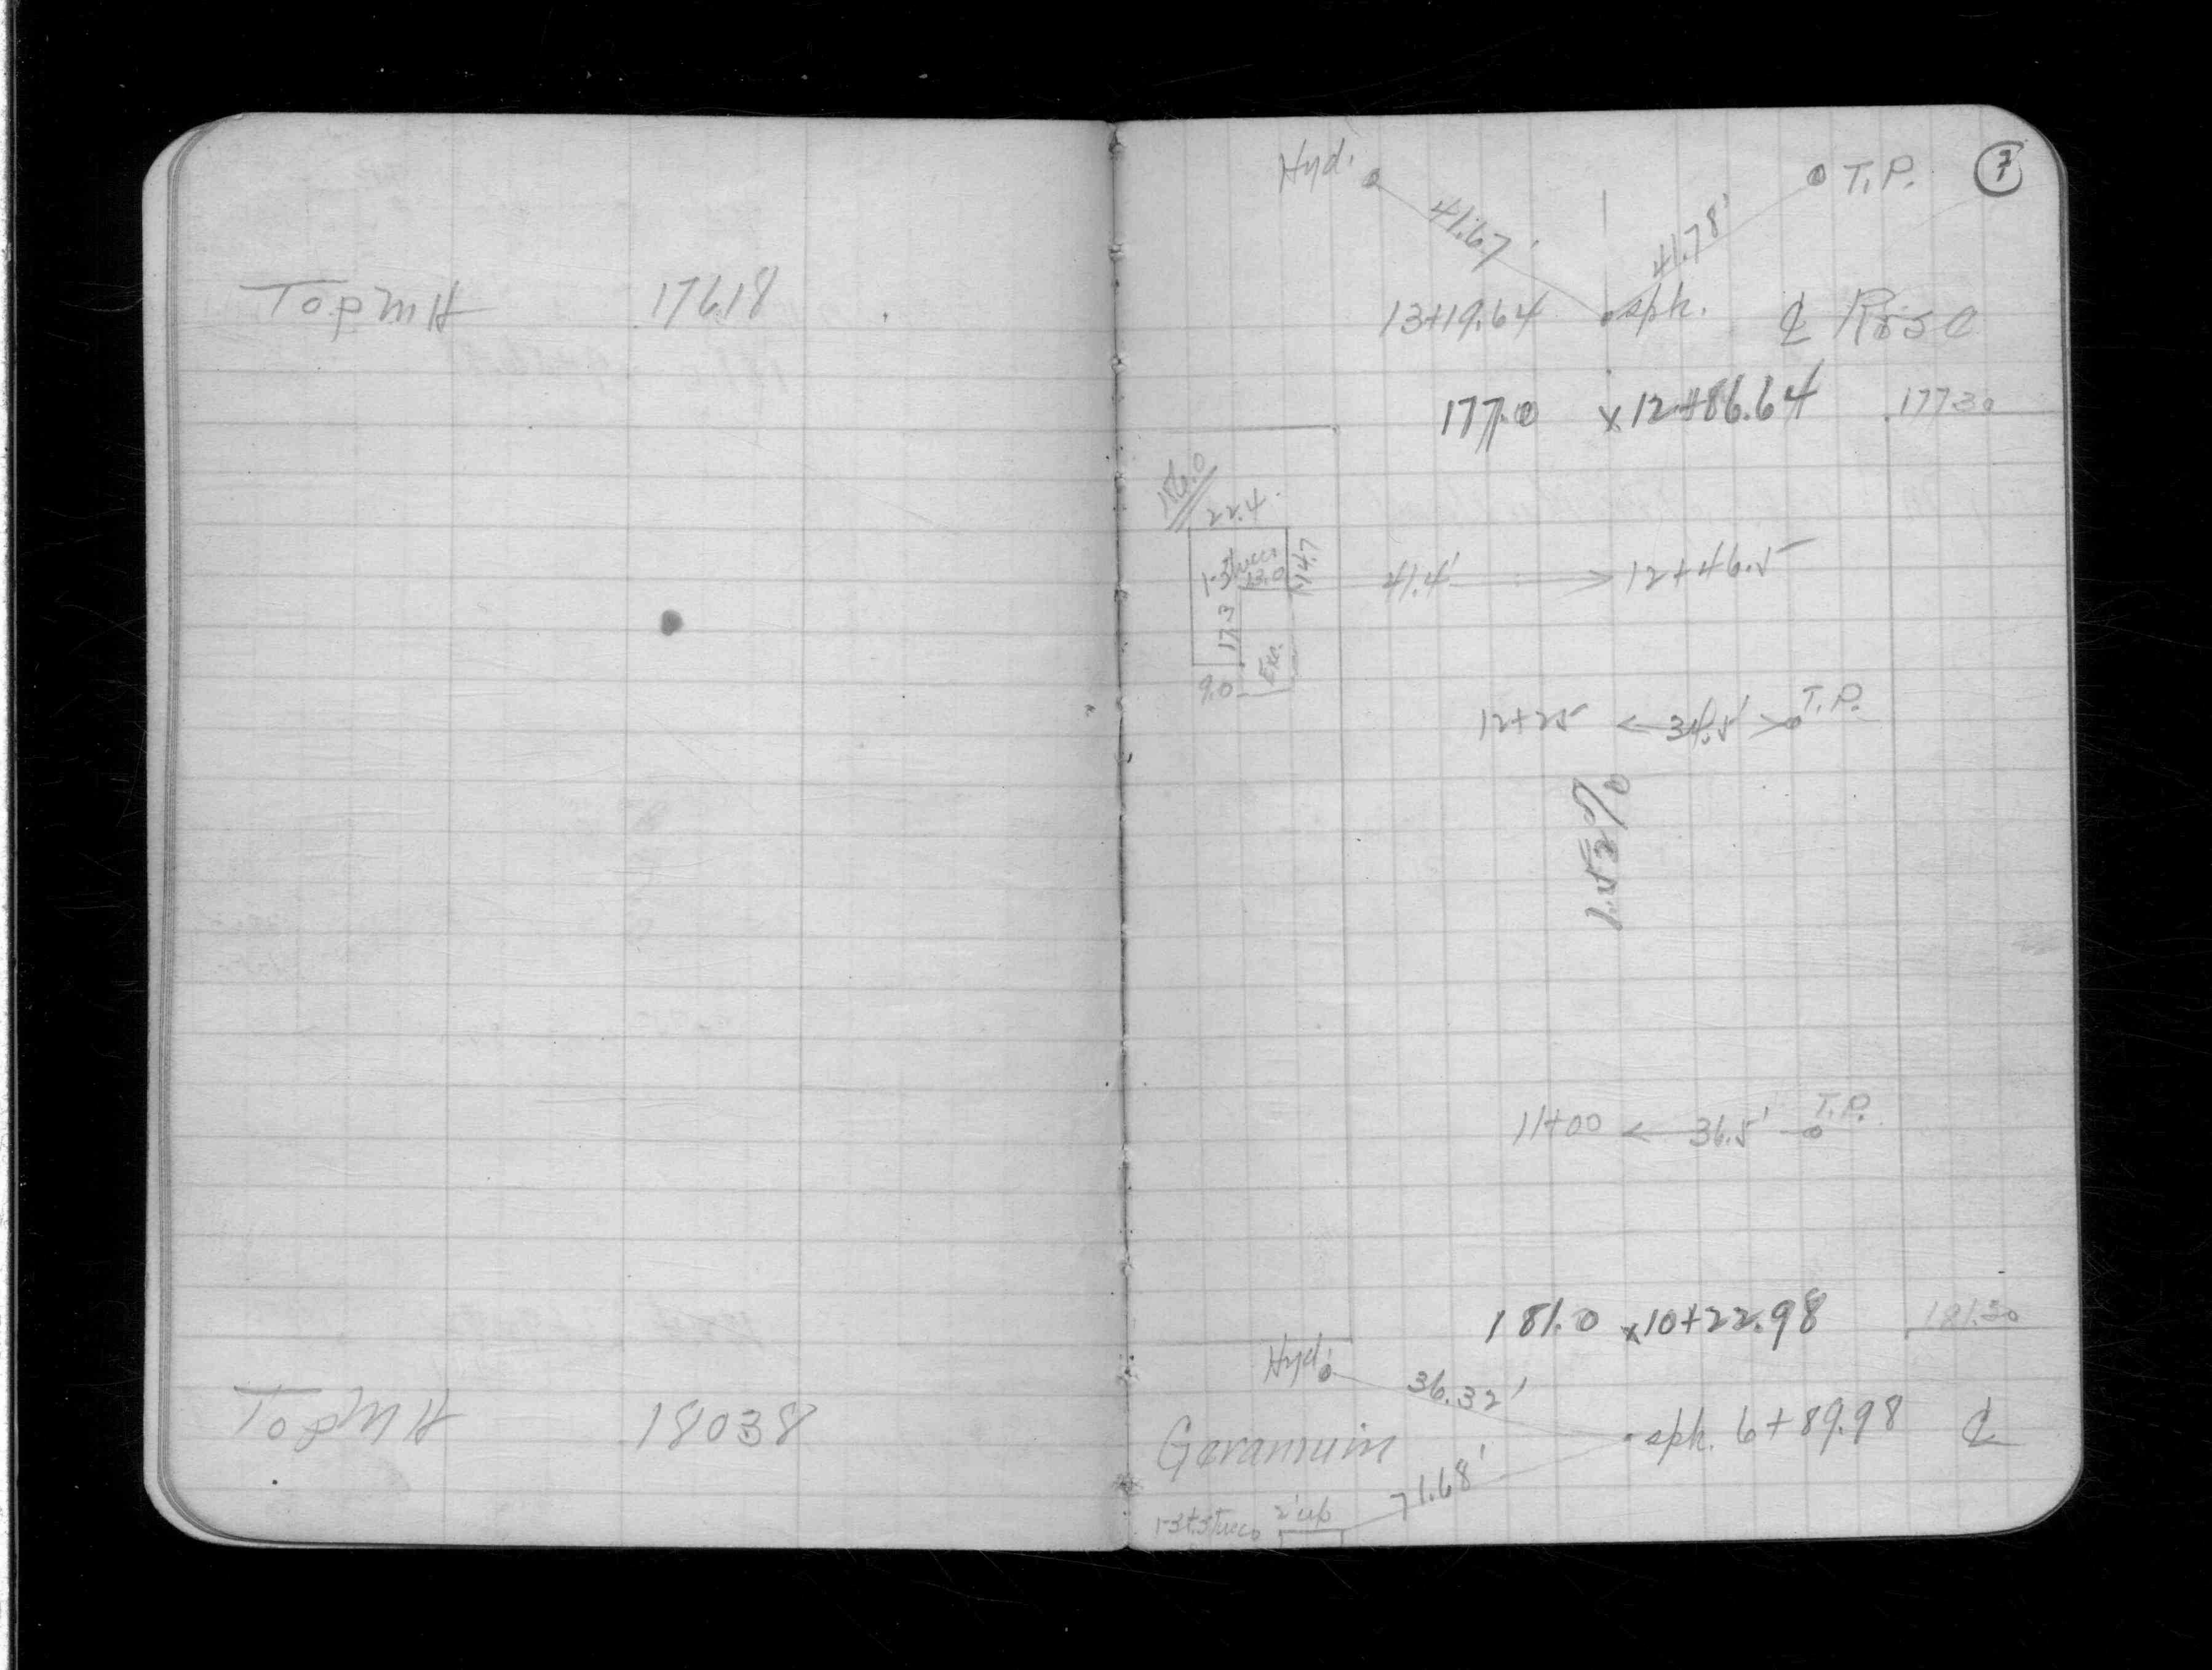 Top MH 176.18
Top MH 180.38
7
Hyd. T.P.
41.67' 41.78'
13+19.64 spk. ℄ Rose
177.0 x 12+86.64 177.30
156.0
22.4
1-Stucco 14.7
13.0
41.4' 12+46.5
17.3
Exc.
9.0
12+25 34.5' T.P.
1.52%
11+00 36.5' T.P.
181.0 x 10+22.98 181.30
Hyd.
36.32'
Geranium spk. 6+89.98 ℄
71.68'
2'up